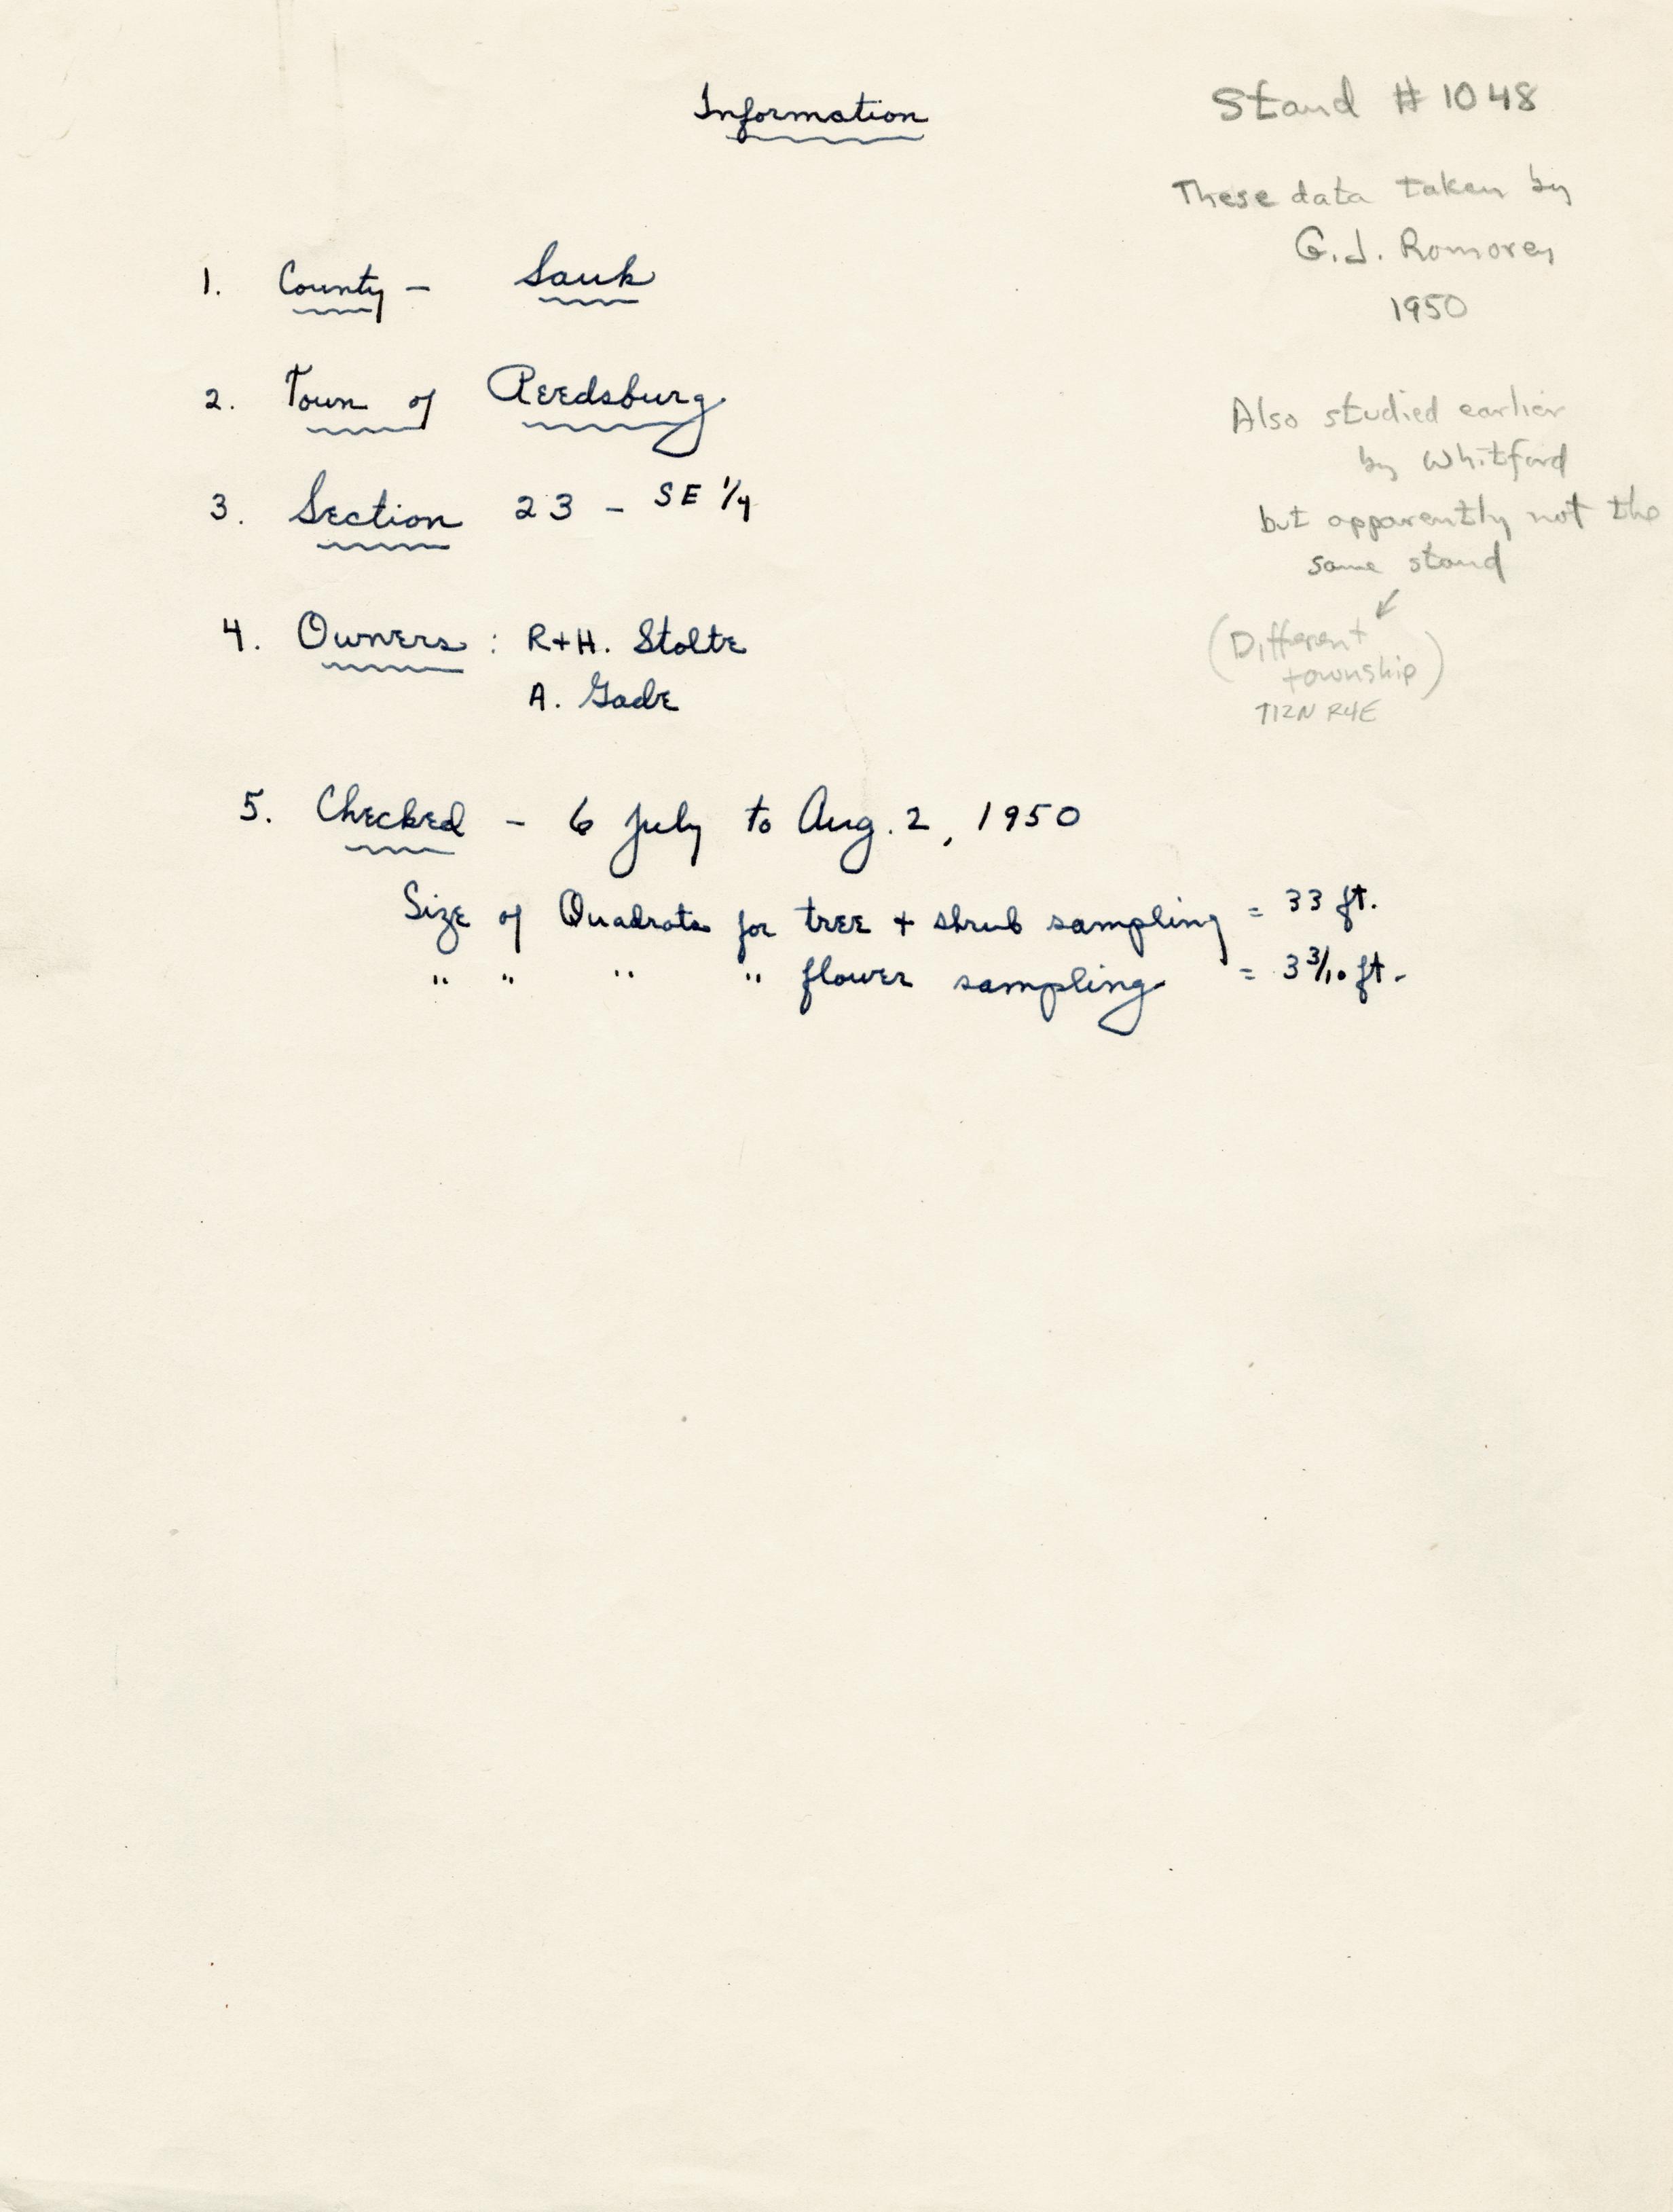 Information
Stand # 1048
These data taken by
G.J. Romorey
1950
1. County - Sauk
2. Town of Reedsburg
3. Section 23 - SE 1/4
4. Owners : R+H. Stolte
A. Gade
Also studied earlier
by Whitford
but apparently not the
same stand
↙
(Different
township)
T12N R4E
5. Checked - 6 July to Aug. 2, 1950
Size of Quadrats for tree + shrub sampling = 33 ft.
" " " " flower sampling = 3 3/10 ft.